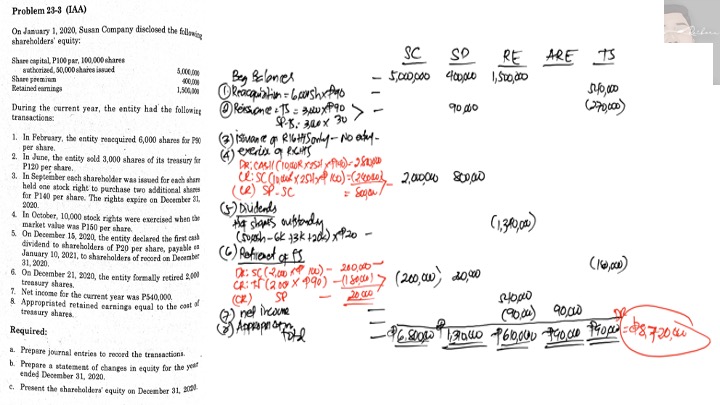 Problem 23-3 (IAA)
On January 1, 2020, Susan Company disclosed the following
shareholders' equity:
Share capital, P100 par, 100,000 shares
authorized, 50,000 shares issued 5,000,000
Share premium 400,000
Retained earnings 1,500,000
During the current year, the entity had the following
transactions:
1. In February, the entity reacquired 6,000 shares for P90
per share.
2. In June, the entity sold 3,000 shares of its treasury for
P120 per share.
3. In September each shareholder was issued for each share
held one stock right to purchase two additional shares
for P140 per share. The rights expire on December 31,
2020.
4. In October, 10,000 stock rights were exercised when the
market value was P150 per share.
5. On December 15, 2020, the entity declared the first cash
dividend to shareholders of P20 per share, payable on
January 10, 2021, to shareholders of record on December
31, 2020.
6. On December 21, 2020, the entity formally retired 2,000
treasury shares.
7. Net income for the current year was P540,000.
8. Appropriated retained earnings equal to the cost of
treasury shares.
Required:
a. Prepare journal entries to record the transactions.
b. Prepare a statement of changes in equity for the year
ended December 31, 2020.
c. Present the shareholders' equity on December 31, 2020.
SC SP RE ARE TS
Beg Balances - 5,000,000 400,000 1,500,000
(1) Reacquisition = 6,000sh x ₱90 - 540,000
(2) Reissuance = TS = 3,000 x ₱90 > - 90,000 (270,000)
SP-TS: 3,000 x 30
(3) issuance of RIGHTS only - No entry -
(4) exercise of RIGHTS
DR: CASH (10,000R x 2SH x ₱140) = 2,800,000
CR: SC (10,000R x 2SH x ₱100) = (2,000,000) - 2,000,000 800,000
(CR) SP - SC = 800,000
(5) Dividends
(50,000sh - 6K + 3K + 20K) x ₱20 - (1,340,000)
(6) Retirement of TS
DR: SC (2,000 x ₱ 100) - 200,000 (200,000) 20,000 (180,000)
CR: TS (2,000 x ₱90) - (180,000)
(CR) SP - 20,000
(7) net income - 540,000
(8) Appropriation - (90,000) 90,000
Total ₱6,800,000 ₱1,310,000 ₱610,000 ₱90,000 ₱90,000 = ₱8,720,000